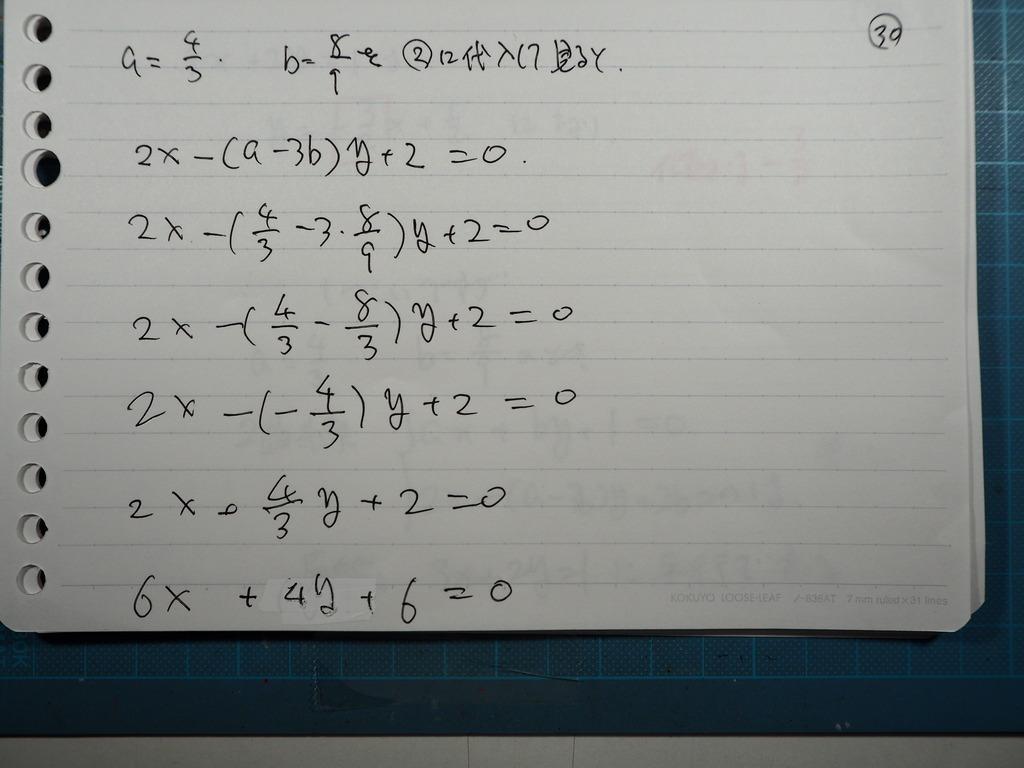 ㊴
a = 4/3. b = 8/9 を ②に代入して見ると.
2x - (a - 3b) y + 2 = 0.
2x - (4/3 - 3・8/9) y + 2 = 0
2x - (4/3 - 8/3) y + 2 = 0
2x - (- 4/3) y + 2 = 0
2x + 4/3 y + 2 = 0
6x + 4y + 6 = 0
KOKUYO LOOSE-LEAF ノ-836AT 7 mm ruled×31 lines